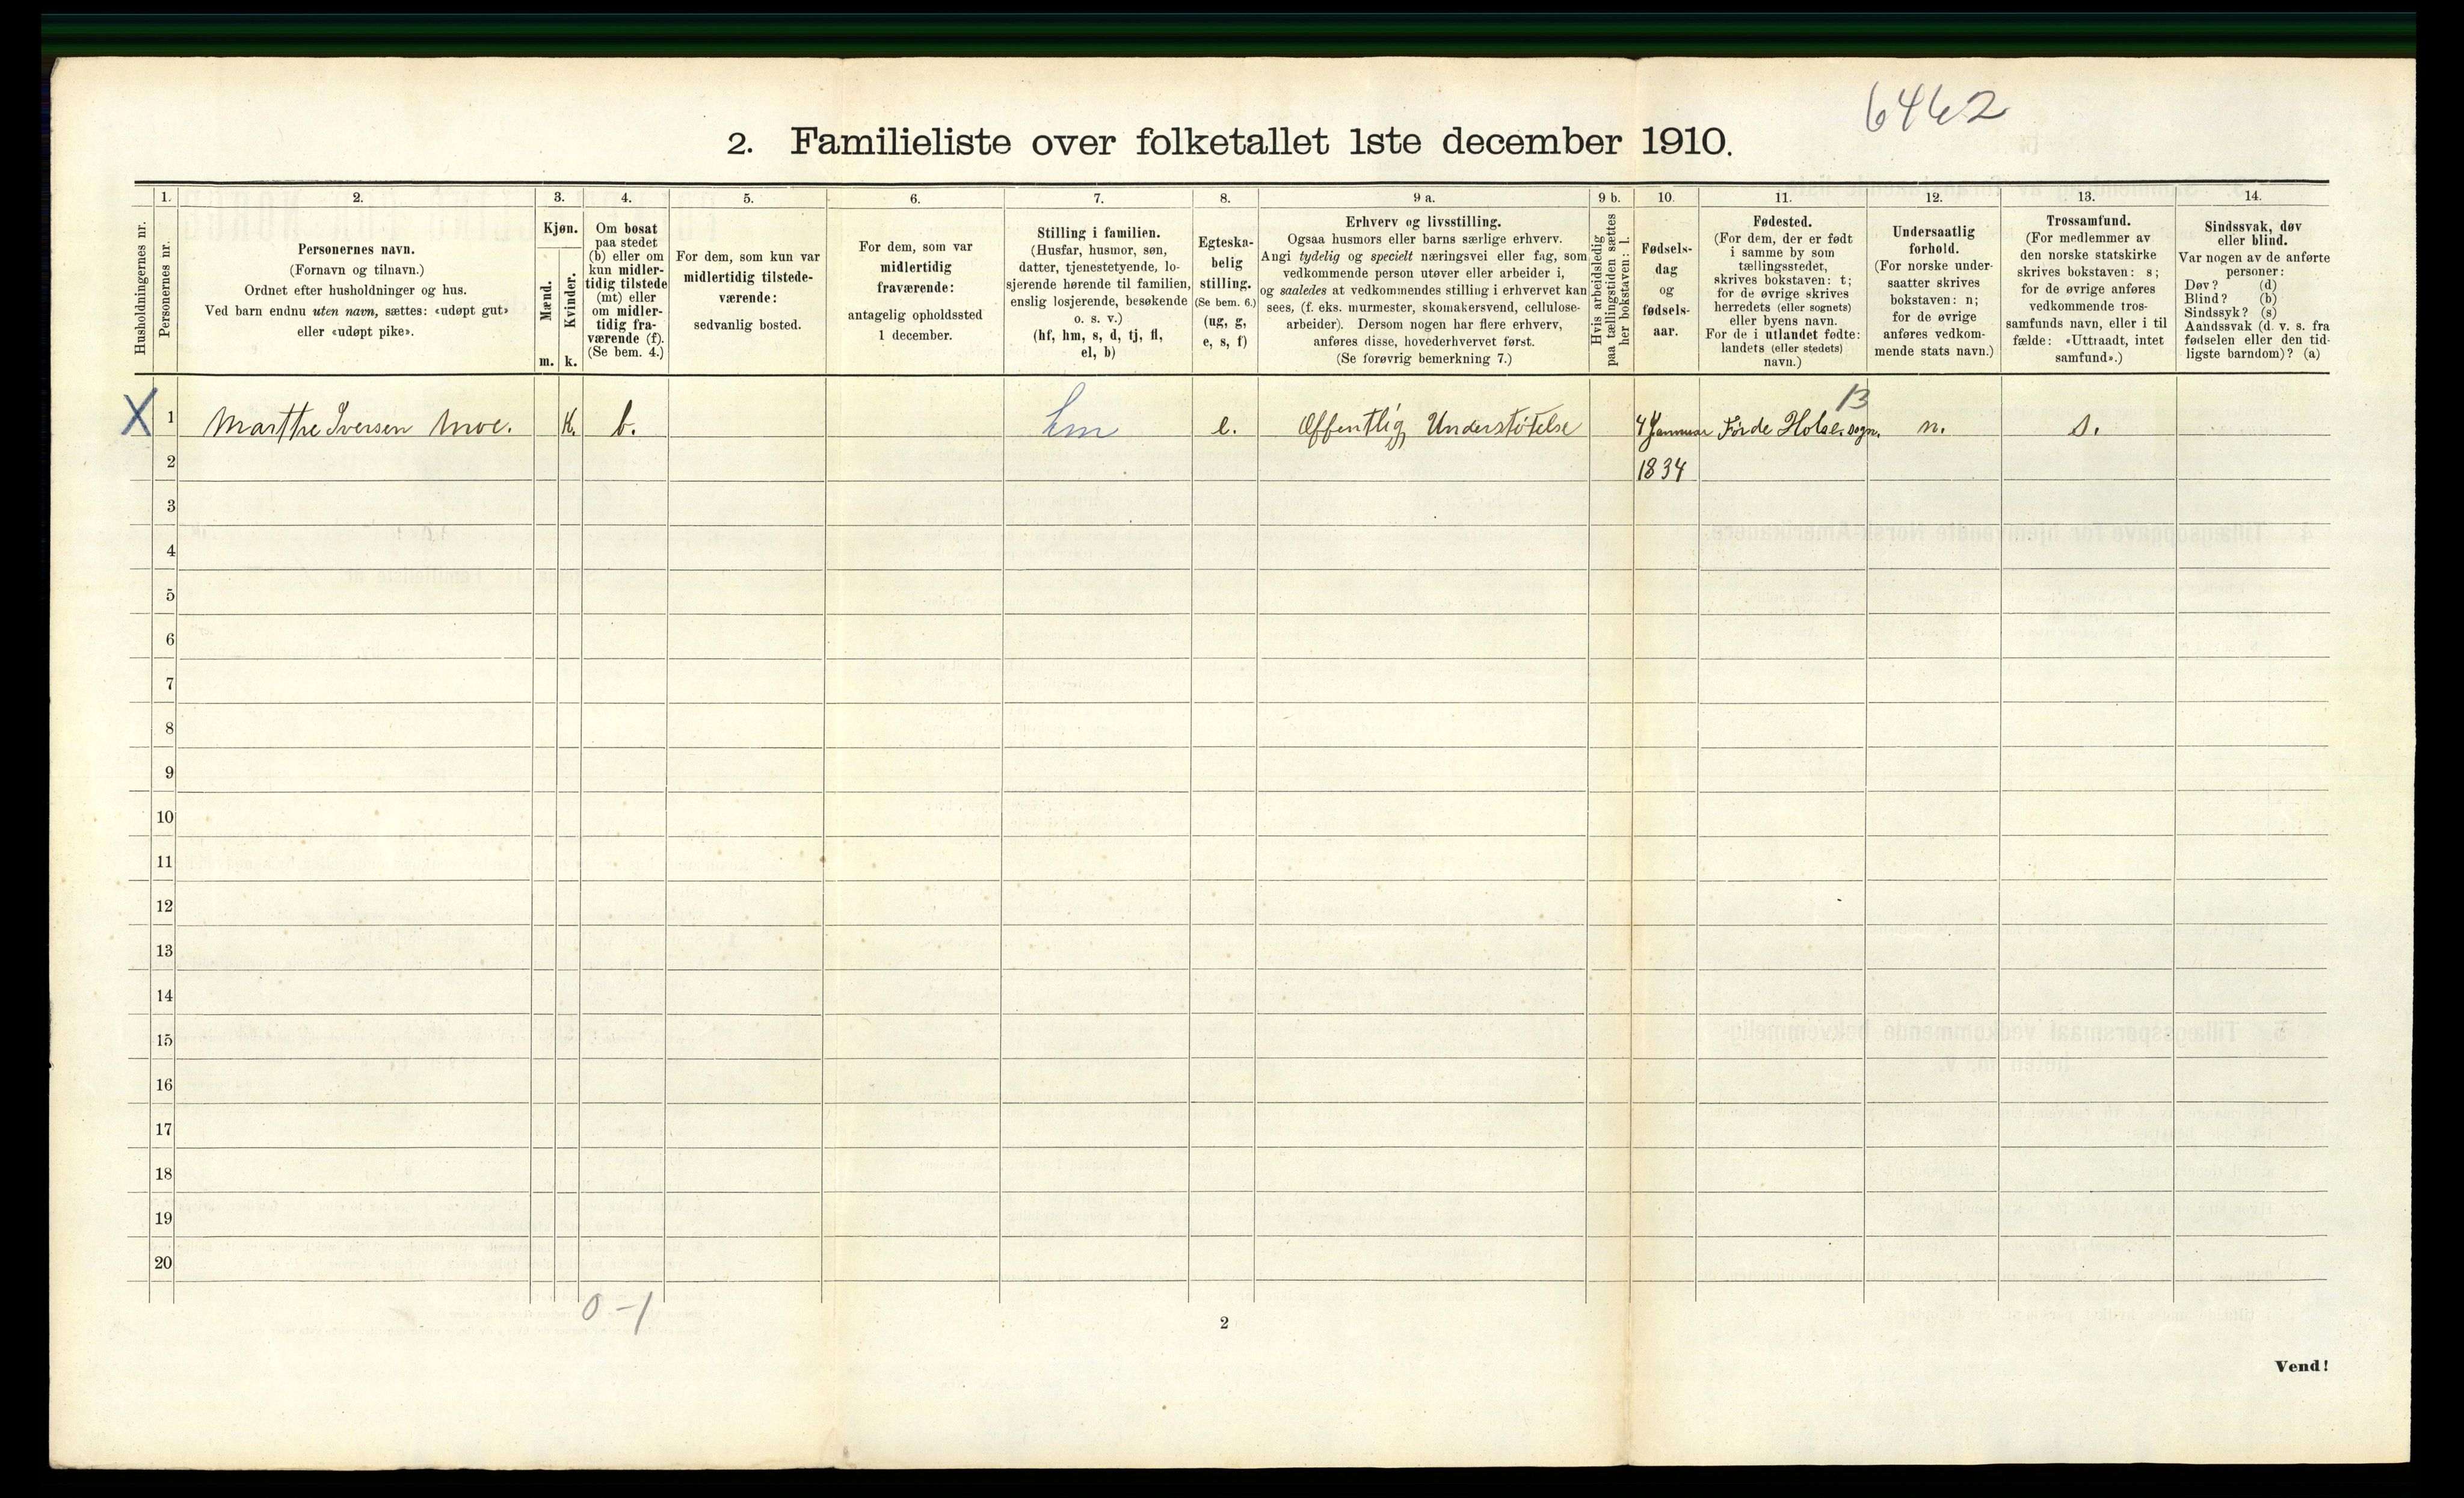 6462
2. Familieliste over folketallet 1ste december 1910.
Husholdningernes nr.
1.
Personernes nr.
2.
Personernes navn.
(Fornavn og tilnavn.)
Ordnet efter husholdninger og hus.
Ved barn endnu uten navn, sættes: «udøpt gut»
eller «udøpt pike».
3.
Kjøn.
Mænd.
Kvinder.
m. k.
4.
Om bosat
paa stedet
(b) eller om
kun midler-
tidig tilstede
(mt) eller
om midler-
tidig fra-
værende (f).
(Se bem. 4.)
5.
For dem, som kun var
midlertidig tilstede-
værende:
sedvanlig bosted.
6.
For dem, som var
midlertidig
fraværende:
antagelig opholdssted
1 december.
7.
Stilling i familien.
(Husfar, husmor, søn,
datter, tjenestetyende, lo-
sjerende hørende til familien,
enslig losjerende, besøkende
o. s. v.)
(hf, hm, s, d, tj, fl,
el, b)
8.
Egteska-
belig
stilling.
(Se bem. 6.)
(ug, g,
e, s, f)
9 a.
Erhverv og livsstilling.
Ogsaa husmors eller barns særlige erhverv.
Angi tydelig og specielt næringsvei eller fag, som
vedkommende person utøver eller arbeider i,
og saaledes at vedkommendes stilling i erhvervet kan
sees, (f. eks. murmester, skomakersvend, cellulose-
arbeider). Dersom nogen har flere erhverv,
anføres disse, hovederhvervet først.
(Se forøvrig bemerkning 7.)
9 b.
Hvis arbeidsledig
paa tællingstiden sættes
her bokstaven: l.
10.
Fødsels-
dag
og
fødsels-
aar.
11.
Fødested.
(For dem, der er født
i samme by som
tællingsstedet,
skrives bokstaven: t;
for de øvrige skrives
herredets (eller sognets)
eller byens navn.
For de i utlandet fødte:
landets (eller stedets)
navn.)
12.
Undersaatlig
forhold.
(For norske under-
saatter skrives
bokstaven: n;
for de øvrige
anføres vedkom-
mende stats navn.)
13.
Trossamfund.
(For medlemmer av
den norske statskirke
skrives bokstaven: s;
for de øvrige anføres
vedkommende tros-
samfunds navn, eller i til
fælde: «Uttraadt, intet
samfund».)
14.
Sindssvak, døv
eller blind.
Var nogen av de anførte
personer:
Døv? (d)
Blind? (b)
Sindssyk? (s)
Aandssvak (d. v. s. fra
fødselen eller den tid-
ligste barndom)? (a)
13
X 1 Marthe Iversen Moe. K. b. hm e. Offentlig Understøtelse 4 Januar Førde Holse. sogn. n. s.
2 1834
3
4
5
6
7
8
9
10
11
12
13
14
15
16
17
18
19
20
0-1
2
Vend!